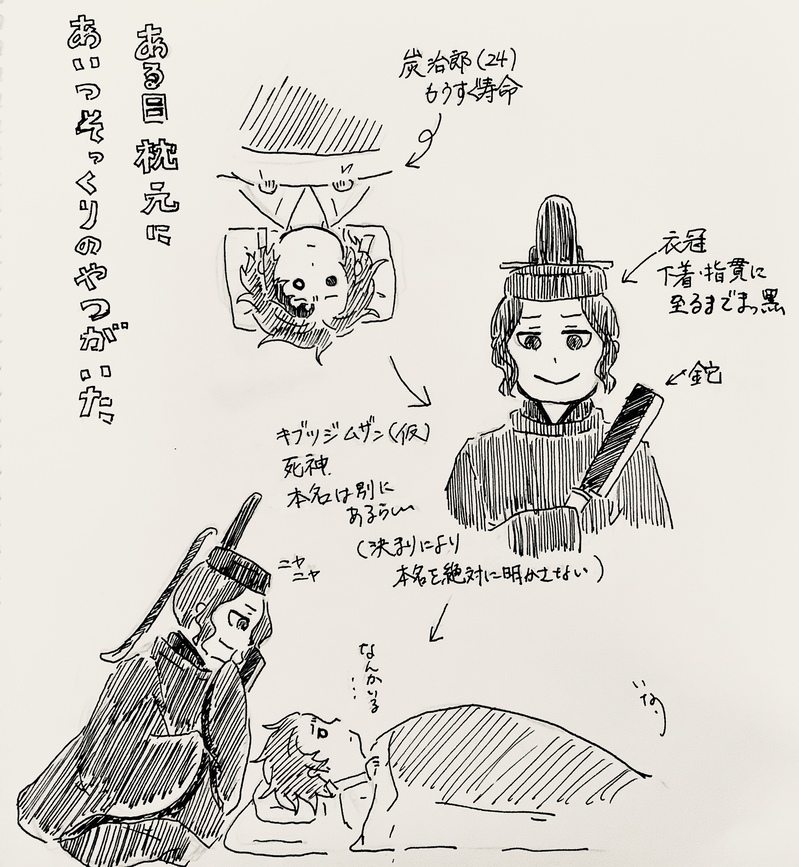 ある日枕元に
あいつそっくりのやつがいた
炭治郎(24)
もうすぐ寿命
衣冠
下着・指貫に
至るまでまっ黒
キブツジムザン(仮)
死神
本名は別に
あるらしい
(決まりにより
本名を絶対に明かさない)
ニヤ
ニヤ
なんかいる
…